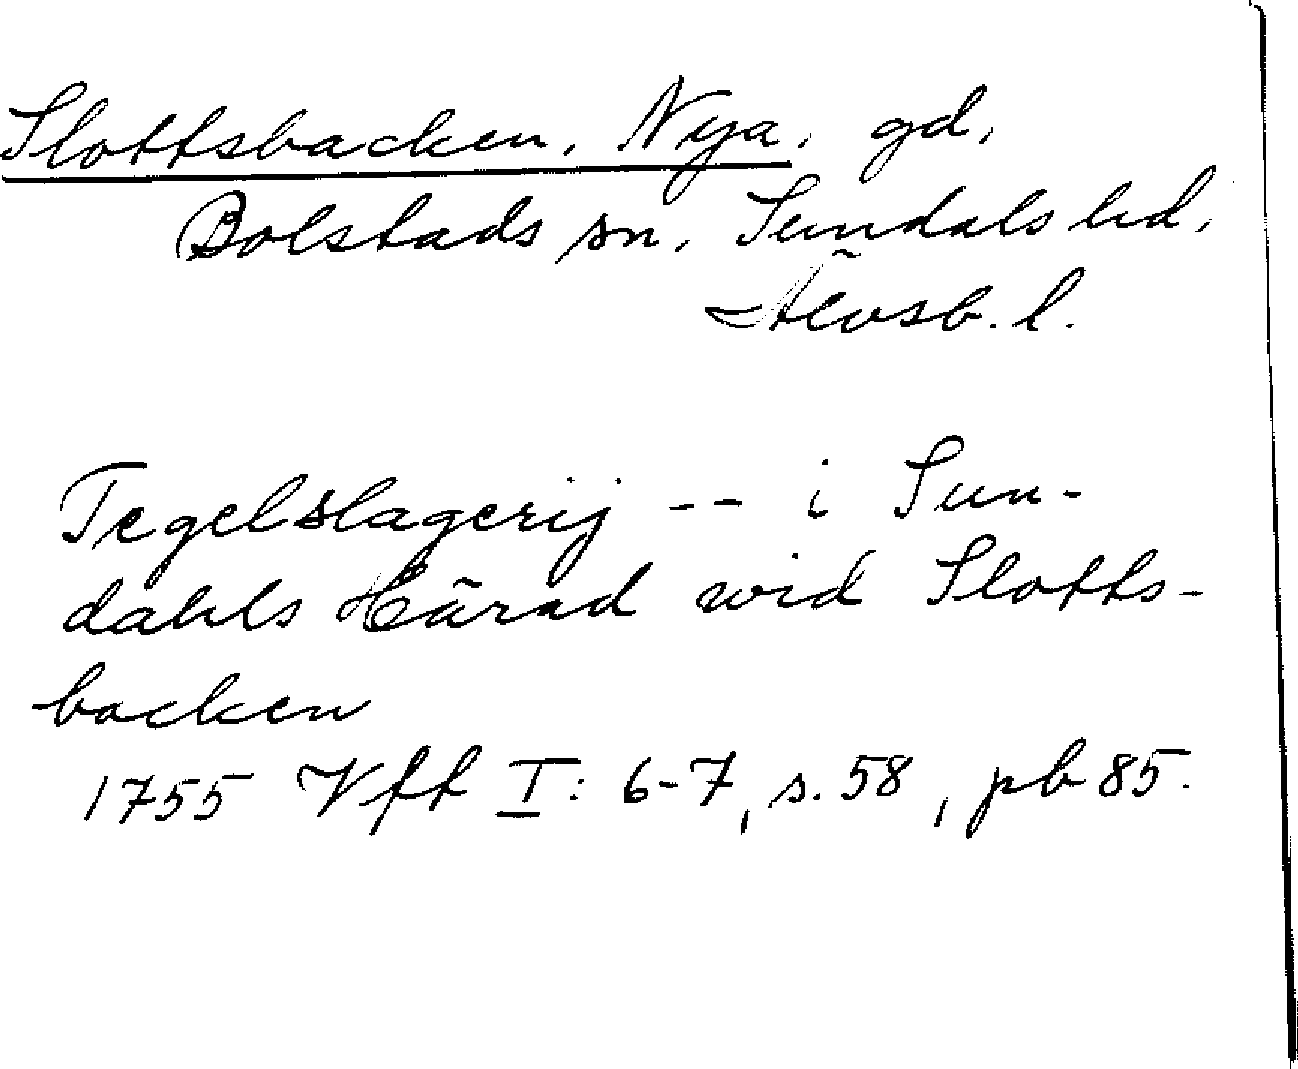 Slottsbacken, Nya, gd,
Bolstads sn, Sundals hd,
Älvsb. l.
Tegelslagerij -- i Sun-
dahls Härad wid Slotts-
backen
1755 Vff I: 6-7, s. 58, pb 85.